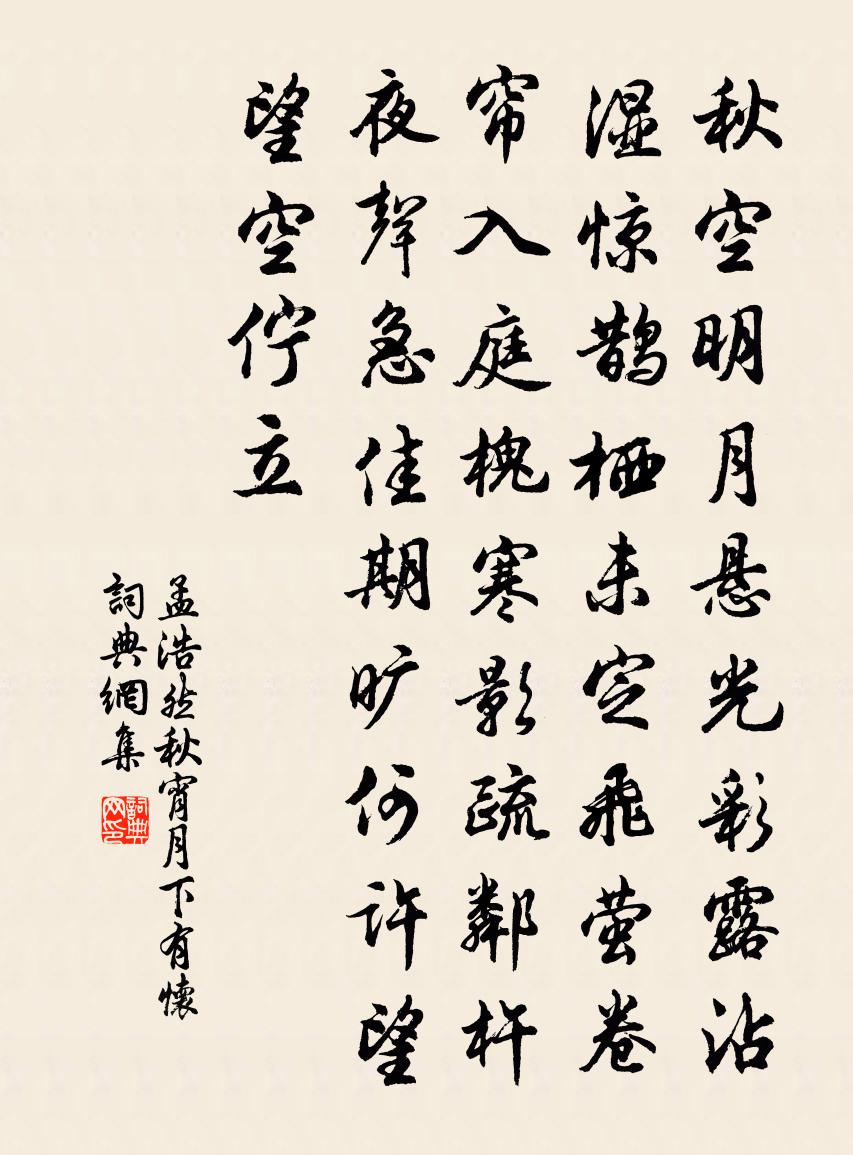 秋空明月悬光彩露沾
湿惊鹊栖未定飞萤卷
帘入庭槐寒影疏鄰杵
夜聲急佳期旷何许望
望空佇立
孟浩然秋宵月下有懷
詞典網集
詞典
网印